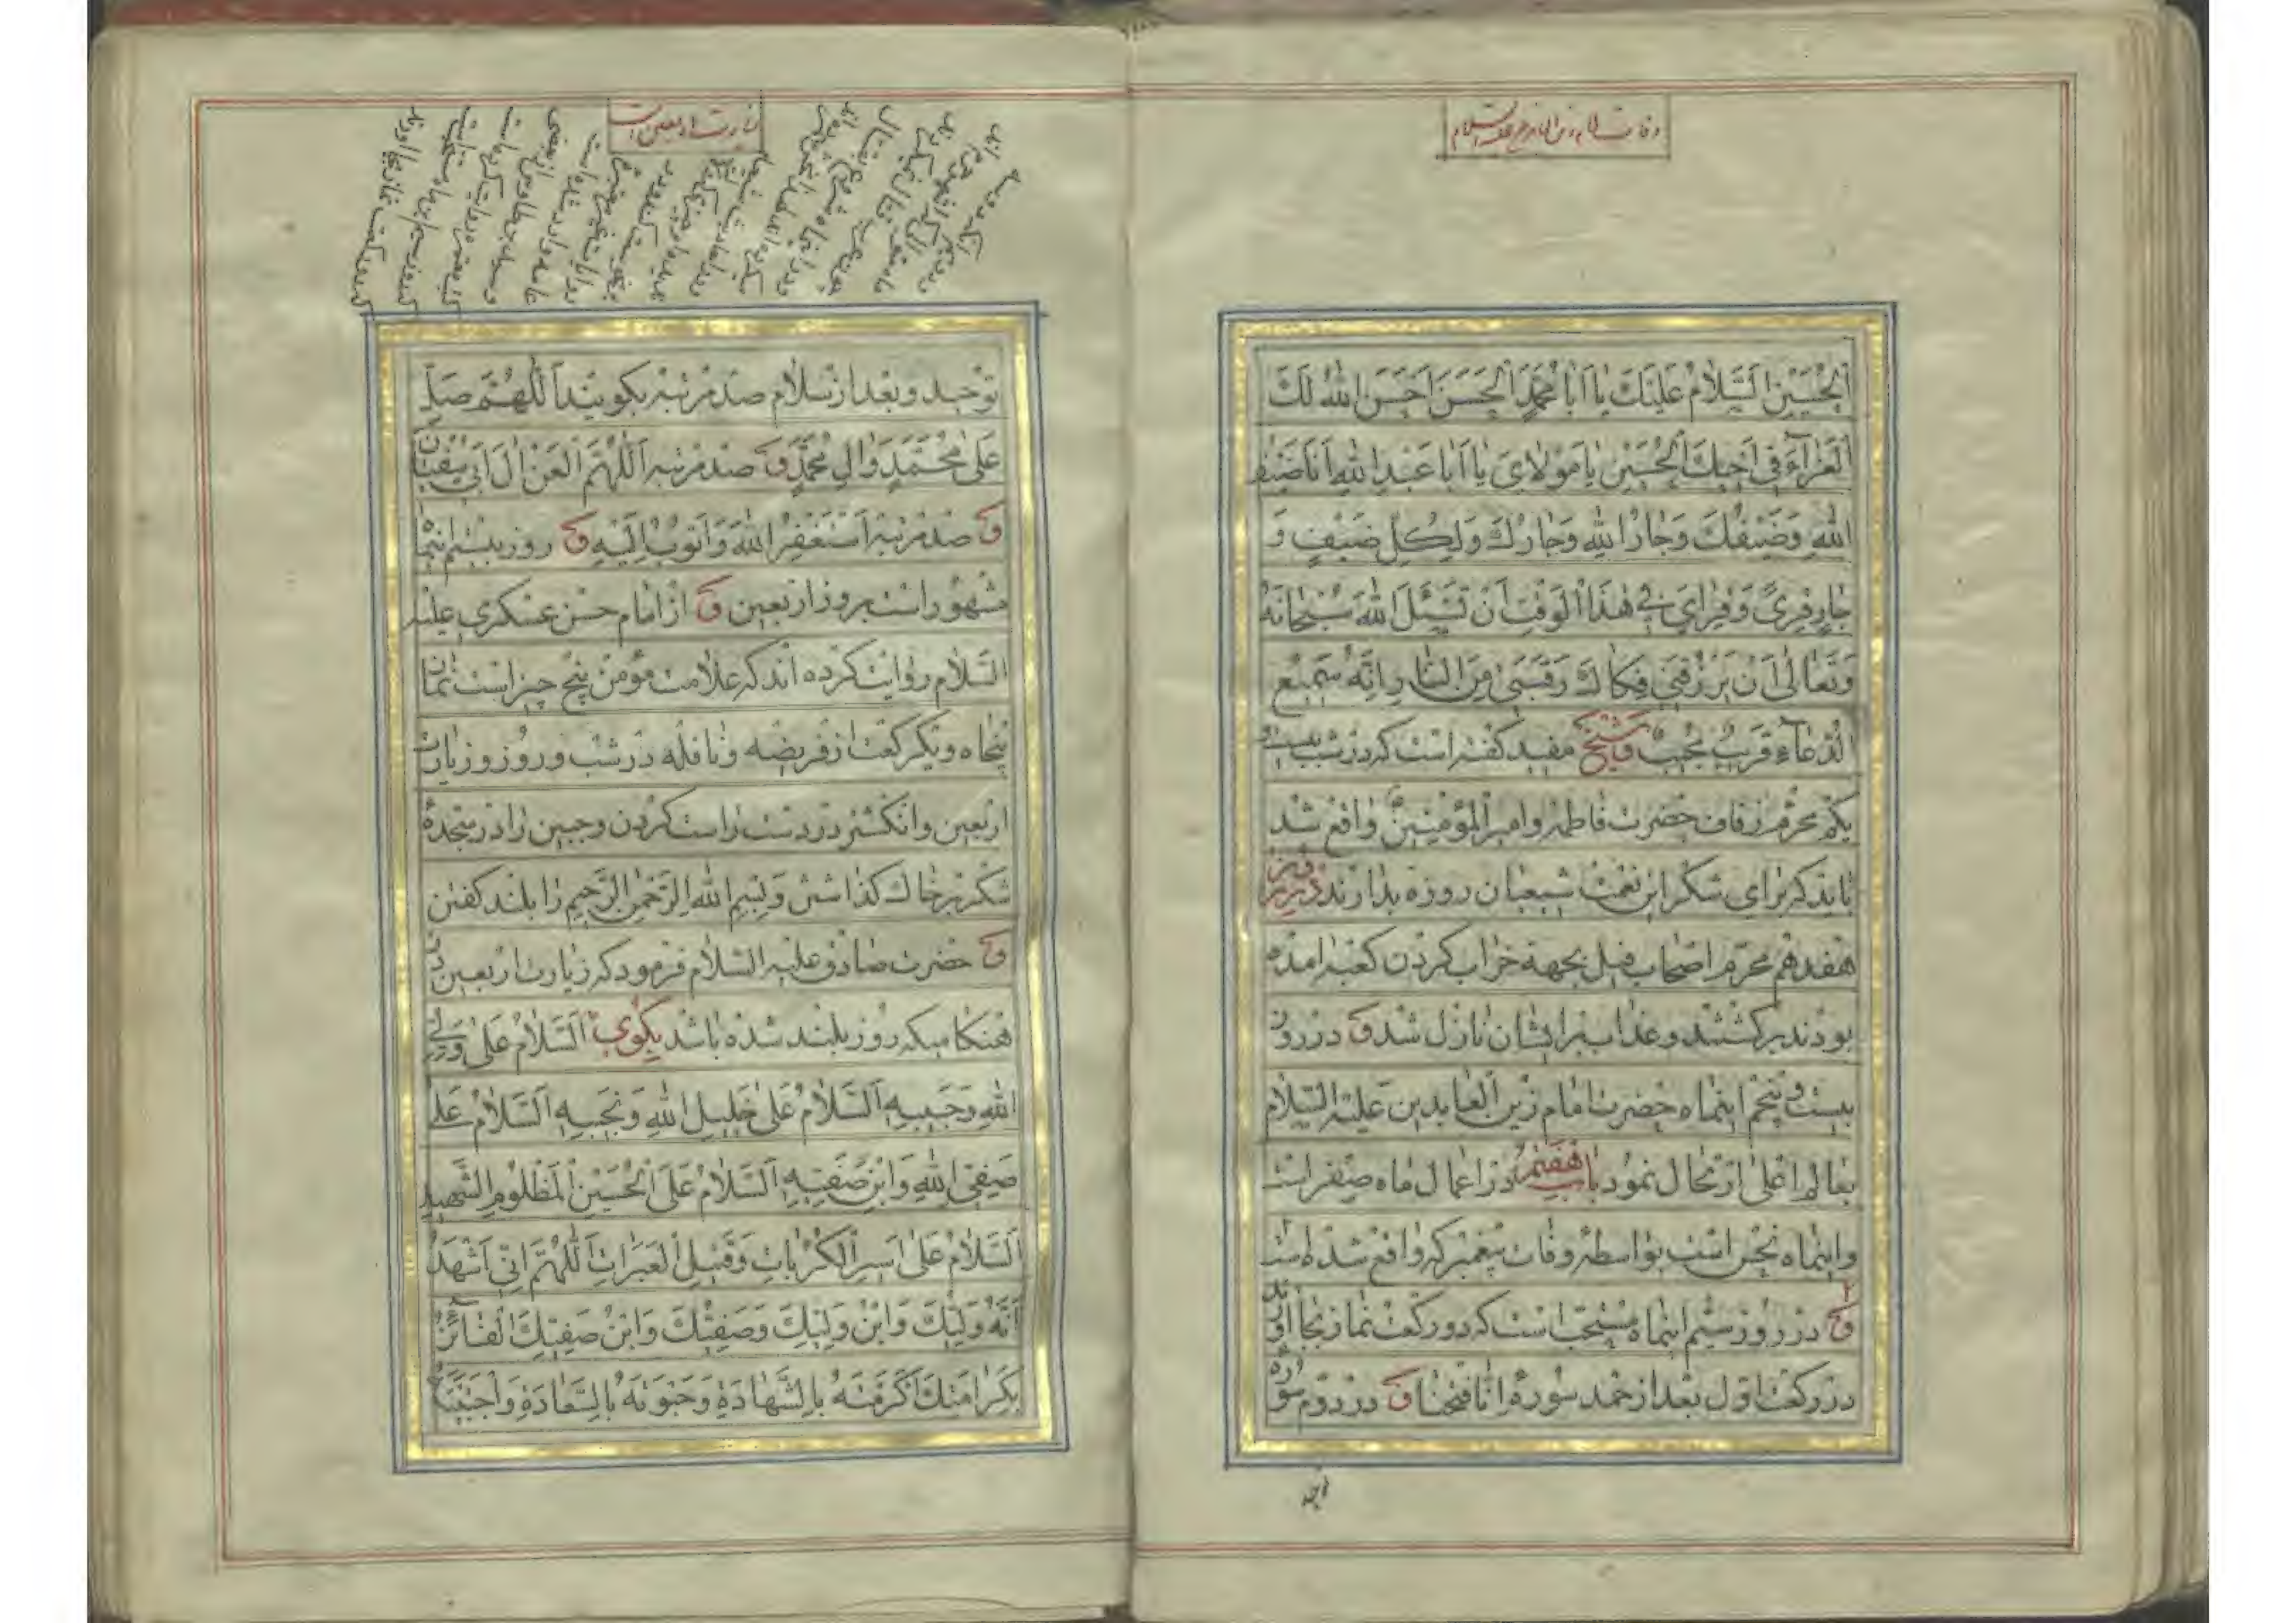 وفات امام زین العابدین علیه السلام
الْحُسَیْنِ اَلسَّلامُ عَلَیْکَ یا اَبا مُحَمَّدٍ الْحَسَنَ اَحْسَنَ اللّٰهُ لَکَ
الْعَزآءَ فی اَخیکَ الْحُسَیْنِ یا مَوْلایَ یا اَبا عَبْدِ اللّٰهِ اَنَا ضَیْفُ
اللّٰهِ وَضَیْفُکَ وَجارُ اللّٰهِ وَجارُکَ وَلِکُلِّ ضَیْفٍ وَ
جارٍ قِریً وَقِرایَ فی هٰذَا الْوَقْتِ اَنْ تَسْئَلَ اللّٰهَ سُبْحانَهُ
وَتَعالیٰ اَنْ یَرْزُقَنی فَکاکَ رَقَبَتی مِنَ النّارِ اِنَّهُ سَمیعُ
الدُّعآءِ قَریبٌ مُجیبٌ وشیخ مفید کفته است که در شب بیست و
یکم محرم زفاف حضرت فاطمه وامیر المؤمنین واقع شد
باید که برای شکر این نعمت شیعیان روزه بدارند ودر روز
هفدهم محرم اصحاب فیل بجهة خراب کردن کعبه امده
بودند برکشتند وعذاب بر ایشان نازل شد و در روز
بیست وپنجم اینماه حضرت امام زین العابدین علیه السلام
بعالم اعلی ارتحال نمود باب هفتم در اعمال ماه صفر است
واینماه نحس است بواسطهٔ وفات پیغمبر که واقع شده است
و در روز سیم اینماه مستحب است که دو رکعت نماز بجا اورند
در رکعت اول بعد از حمد سورهٔ انا فتحنا و در دوم سوره
توحید
زیارت اربعین است
توحید وبعد از سلام صد مرتبه بکویند اَللّٰهُمَّ صَلِّ
عَلیٰ مُحَمَّدٍ وَالِ مُحَمَّدٍ و صد مرتبه اَللّٰهُمَّ الْعَنْ الَ اَبی سُفْیانَ
و صد مرتبه اَسْتَغْفِرُ اللّٰهَ وَاَتُوبُ اِلَیْهِ و روز بیستم اینماه
مشهور است بروز اربعین و از امام حسن عسکری علیه
السلام روایت کرده اند که علامت مؤمن پنج چیز است نماز
پنجاه ویکرکعت از فریضه ونافله در شب وروز وزیارت
اربعین وانکشتر در دست راست کردن وجبین را در سجدهٔ
شکر بر خاک کذاشتن وبسم الله الرحمن الرحیم را بلند کفتن
و حضرت صادق علیه السلام فرمود که زیارت اربعین در
هنکامیکه روز بلند شده باشد بکوی اَلسَّلامُ عَلیٰ وَلِیِّ
اللّٰهِ وَحَبیبِهِ اَلسَّلامُ عَلیٰ خَلیلِ اللّٰهِ وَنَجیبِهِ اَلسَّلامُ عَلیٰ
صَفِیِّ اللّٰهِ وَابْنِ صَفِیِّهِ اَلسَّلامُ عَلَی الْحُسَیْنِ الْمَظْلُومِ الشَّهیدِ
اَلسَّلامُ عَلیٰ اَسیرِ الْکُرُباتِ وَقَتیلِ الْعَبَراتِ اَللّٰهُمَّ اِنّی اَشْهَدُ
اَنَّهُ وَلِیُّکَ وَابْنُ وَلِیِّکَ وَصَفِیُّکَ وَابْنُ صَفِیِّکَ الْفائِزُ
بِکَرامَتِکَ اَکْرَمْتَهُ بِالشَّهادَةِ وَحَبَوْتَهُ بِالسَّعادَةِ وَاجْتَبَیْتَهُ